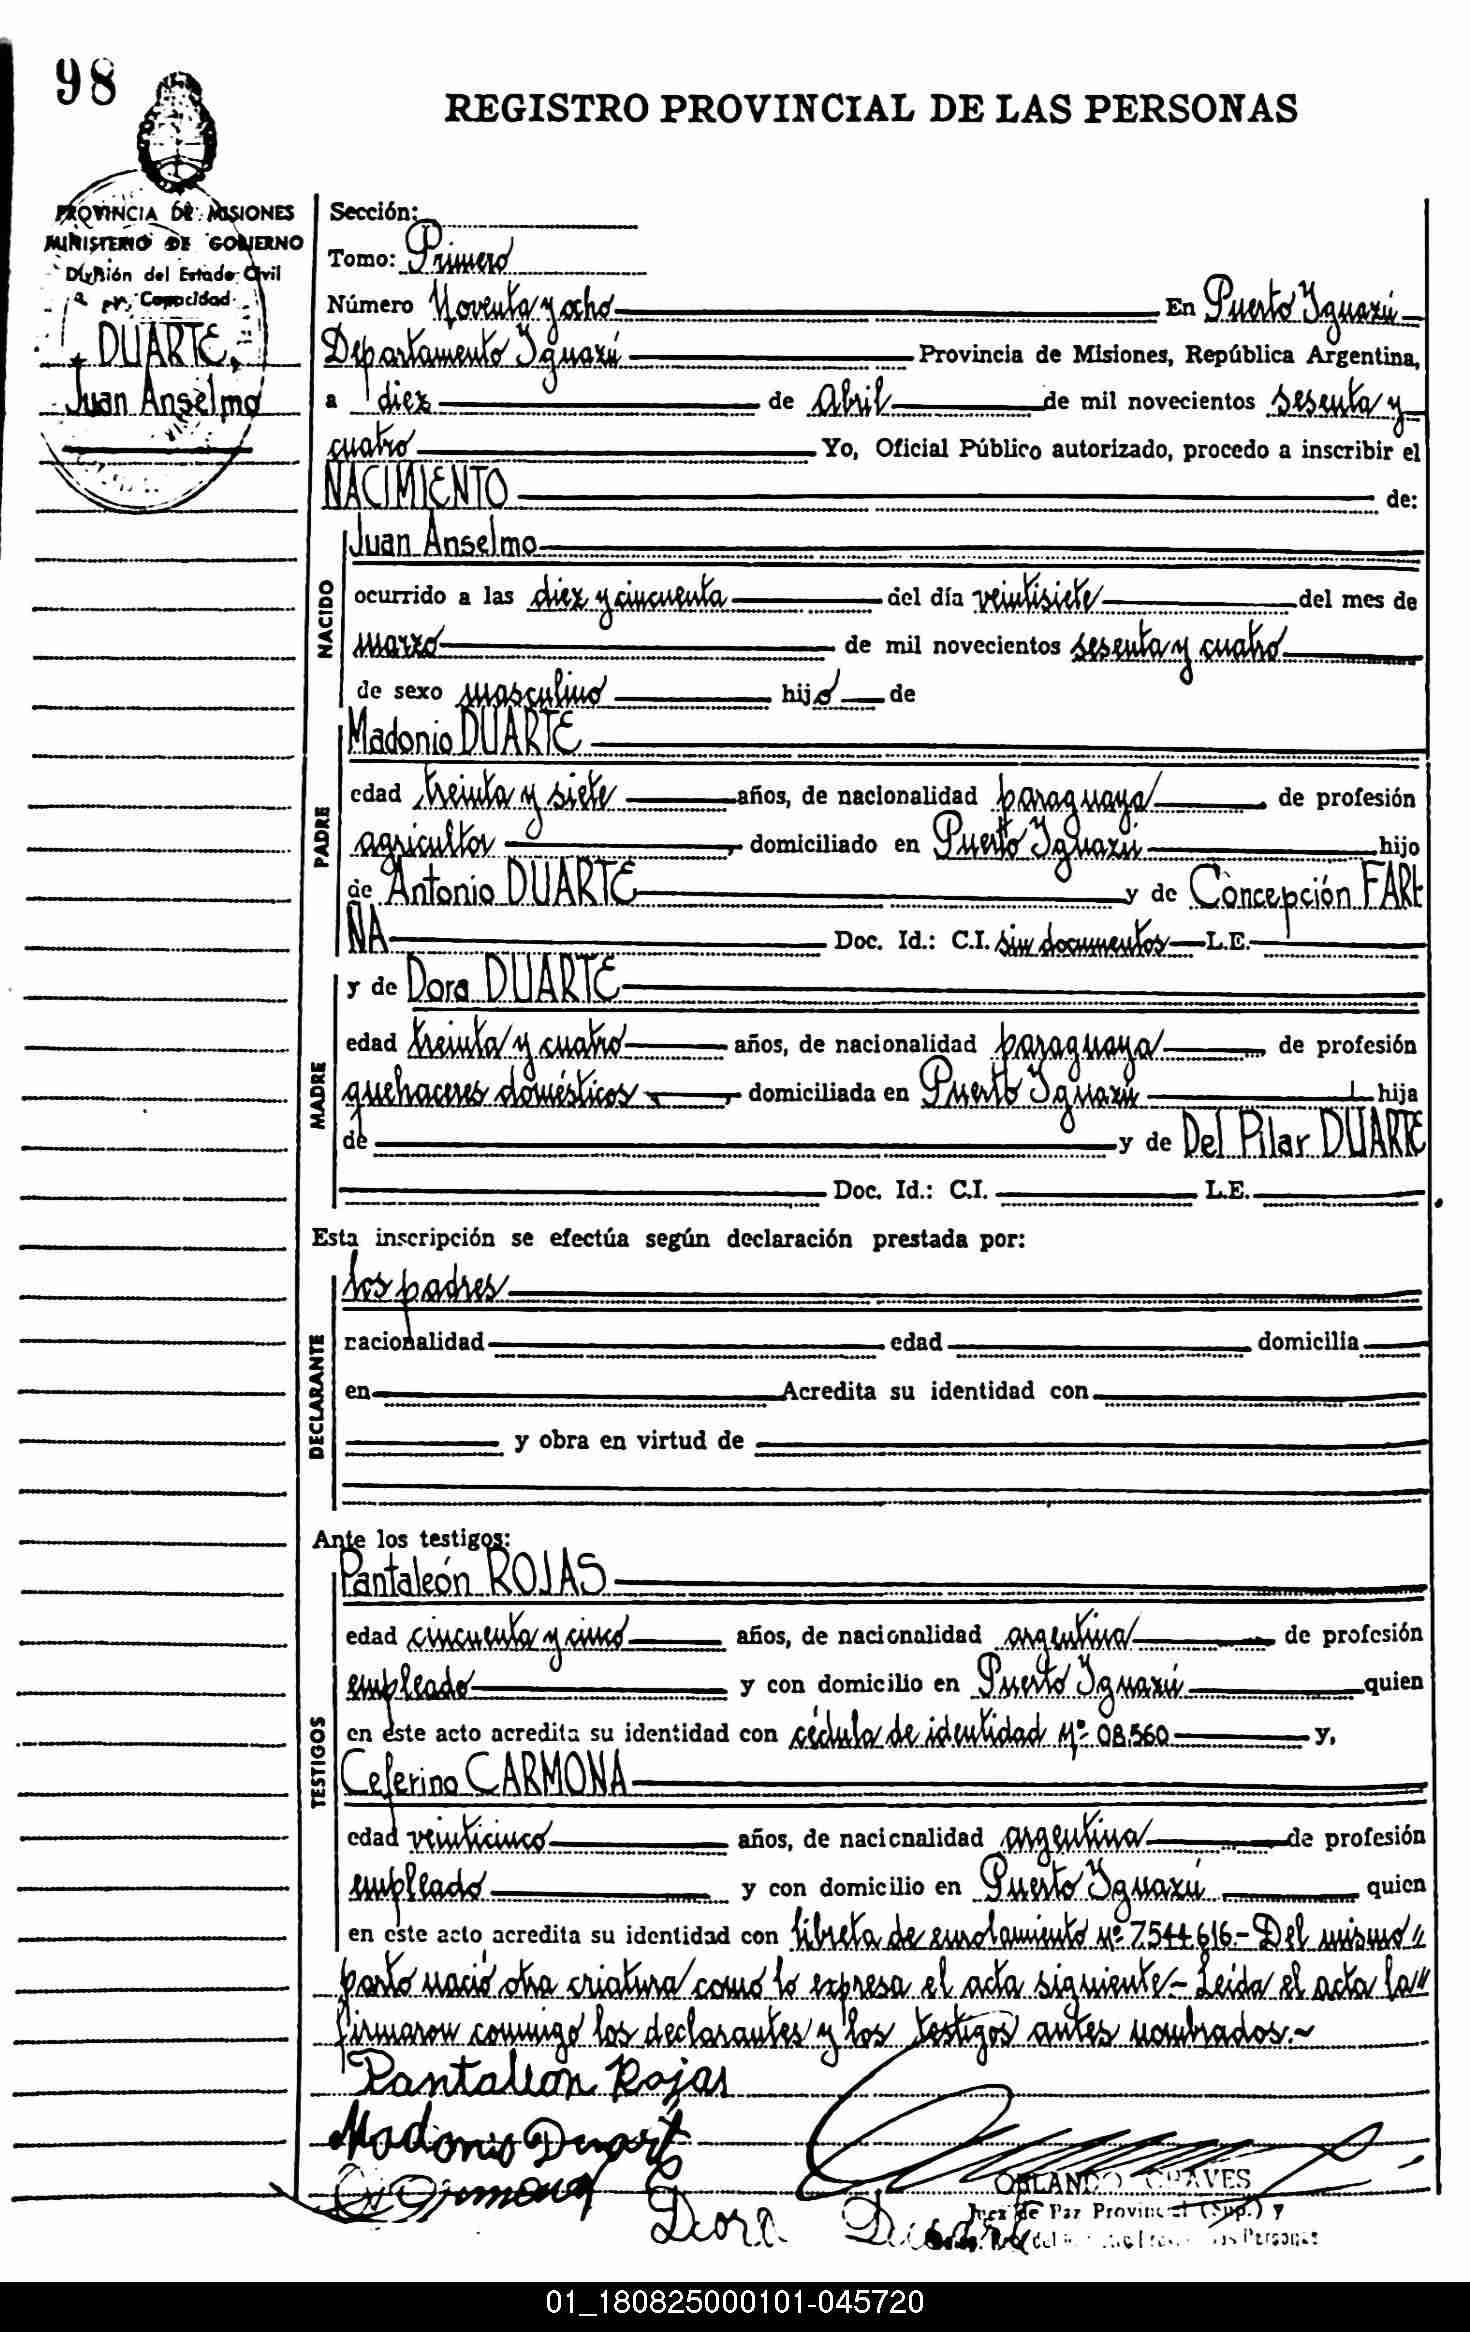 98
REGISTRO PROVINCIAL DE LAS PERSONAS
PROVINCIA DE MISIONES
MINISTERIO DE GOBIERNO
División del Estado Civil
y Capacidad
DUARTE,
Juan Anselmo
Sección:
Tomo: Primero
Número Noventa y ocho En Puerto Iguazú
Departamento Iguazú Provincia de Misiones, República Argentina,
a diez de Abril de mil novecientos sesenta y
cuatro Yo, Oficial Público autorizado, procedo a inscribir el
NACIMIENTO de:
NACIDO
Juan Anselmo
ocurrido a las diez y cincuenta del día veintisiete del mes de
marzo de mil novecientos sesenta y cuatro
de sexo masculino hijo de
PADRE
Madonio DUARTE
edad treinta y siete años, de nacionalidad paraguaya de profesión
agricultor, domiciliado en Puerto Iguazú hijo
de Antonio DUARTE y de Concepción FARI
NA Doc. Id.: C.I. sin documentos L.E.
MADRE
y de Dora DUARTE
edad treinta y cuatro años, de nacionalidad paraguaya de profesión
quehaceres domésticos, domiciliada en Puerto Iguazú hija
de y de Del Pilar DUARTE
Doc. Id.: C.I. L.E.
Esta inscripción se efectúa según declaración prestada por:
DECLARANTE
los padres
nacionalidad edad domicilia
en Acredita su identidad con
y obra en virtud de
Ante los testigos:
TESTIGOS
Pantaleón ROJAS
edad cincuenta y cinco años, de nacionalidad argentina de profesión
empleado y con domicilio en Puerto Iguazú quien
en este acto acredita su identidad con cédula de identidad Nº 08.560 y,
Ceferino CARMONA
edad veinticinco años, de nacionalidad argentina de profesión
empleado y con domicilio en Puerto Iguazú quien
en este acto acredita su identidad con libreta de enrolamiento Nº 7.544.616.- Del mismo"
parto nació otra criatura como lo expresa el acta siguiente.- Leída el acta la"
firmaron conmigo los declarantes y los testigos antes nombrados.~
Pantalion Rojas
Madonio Duart
Dora Duarte
ORLANDO CHAVES
Juez de Paz Provincial (Sup.) y
las Personas
01_180825000101-045720